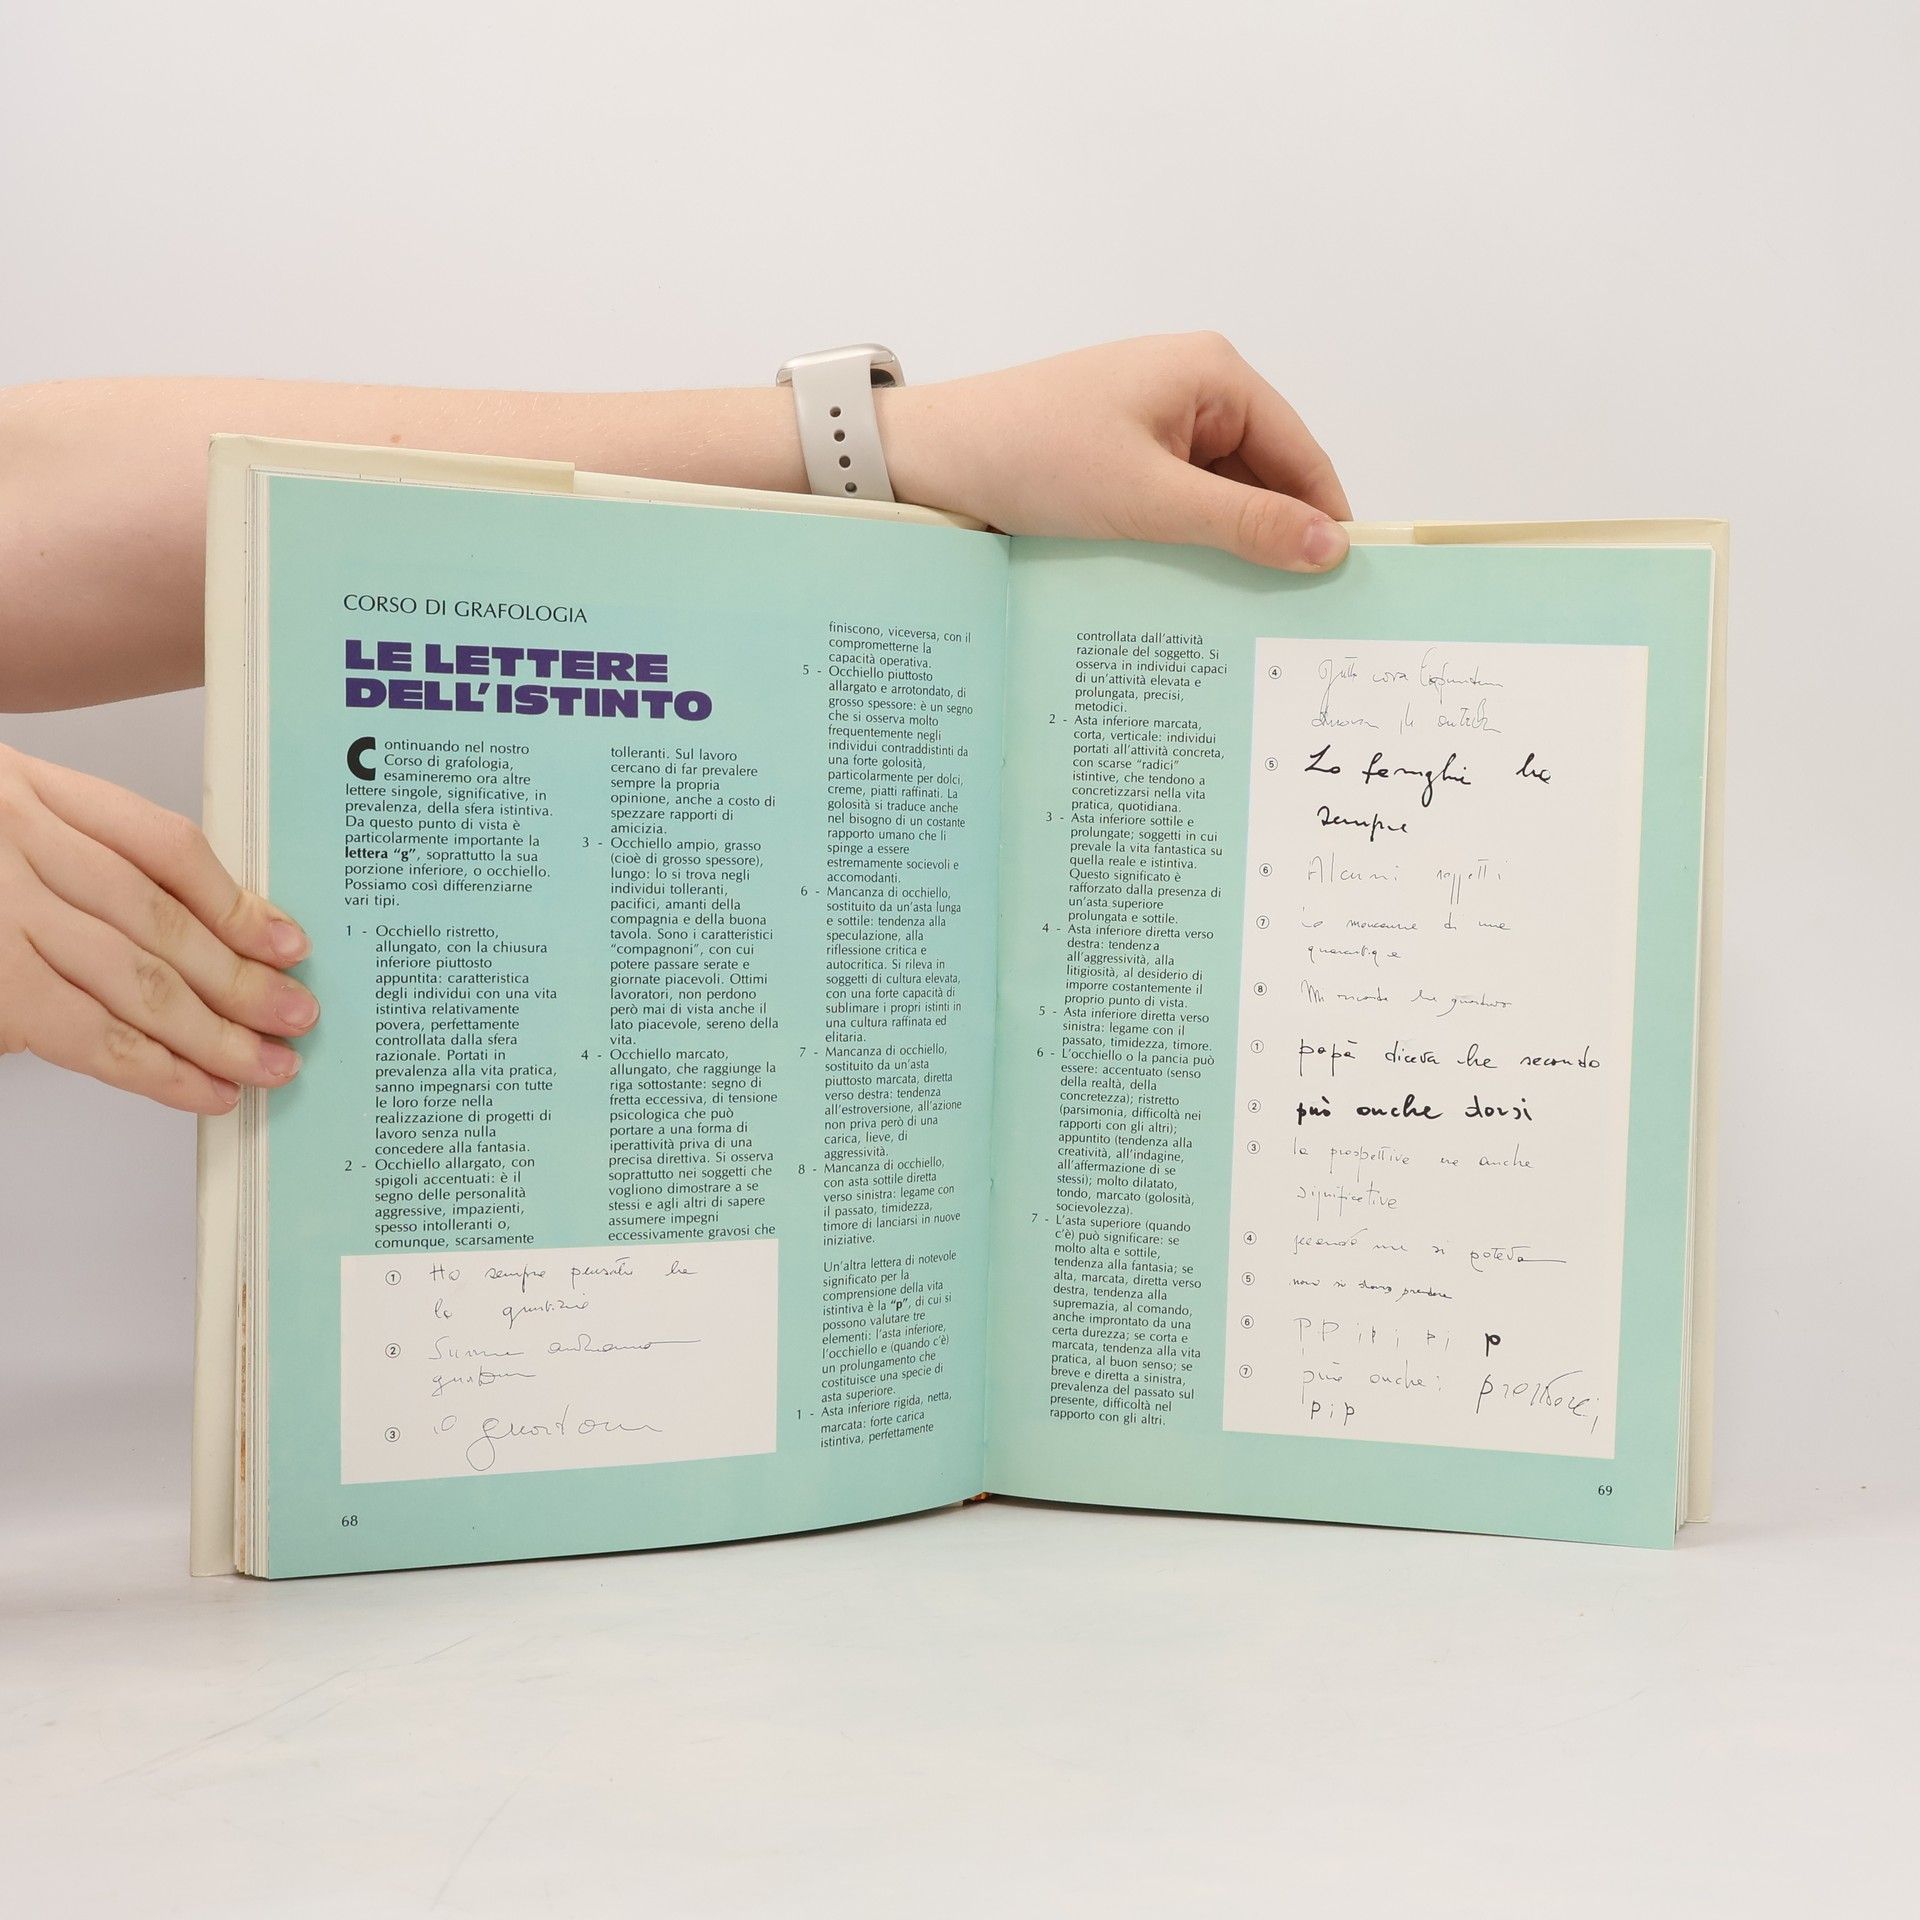 CORSO DI GRAFOLOGIA
LE LETTERE
DELL'ISTINTO
Continuando nel nostro
Corso di grafologia,
esamineremo ora altre
lettere singole, significative, in
prevalenza, della sfera istintiva.
Da questo punto di vista è
particolarmente importante la
lettera "g", soprattutto la sua
porzione inferiore, o occhiello.
Possiamo così differenziarne
vari tipi.
1 - Occhiello ristretto,
allungato, con la chiusura
inferiore piuttosto
appuntita: caratteristica
degli individui con una vita
istintiva relativamente
povera, perfettamente
controllata dalla sfera
razionale. Portati in
prevalenza alla vita pratica,
sanno impegnarsi con tutte
le loro forze nella
realizzazione di progetti di
lavoro senza nulla
concedere alla fantasia.
2 - Occhiello allargato, con
spigoli accentuati: è il
segno delle personalità
aggressive, impazienti,
spesso intolleranti o,
comunque, scarsamente
tolleranti. Sul lavoro
cercano di far prevalere
sempre la propria
opinione, anche a costo di
spezzare rapporti di
amicizia.
3 - Occhiello ampio, grasso
(cioè di grosso spessore),
lungo: lo si trova negli
individui tolleranti,
pacifici, amanti della
compagnia e della buona
tavola. Sono i caratteristici
"compagnoni", con cui
potere passare serate e
giornate piacevoli. Ottimi
lavoratori, non perdono
però mai di vista anche il
lato piacevole, sereno della
vita.
4 - Occhiello marcato,
allungato, che raggiunge la
riga sottostante: segno di
fretta eccessiva, di tensione
psicologica che può
portare a una forma di
iperattività priva di una
precisa direttiva. Si osserva
soprattutto nei soggetti che
vogliono dimostrare a se
stessi e agli altri di sapere
assumere impegni
eccessivamente gravosi che
1 Ho sempre pensato che
la giustizia
2
3 io
68
finiscono, viceversa, con il
comprometterne la
capacità operativa.
5 - Occhiello piuttosto
allargato e arrotondato, di
grosso spessore: è un segno
che si osserva molto
frequentemente negli
individui contraddistinti da
una forte golosità,
particolarmente per dolci,
creme, piatti raffinati. La
golosità si traduce anche
nel bisogno di un costante
rapporto umano che li
spinge a essere
estremamente socievoli e
accomodanti.
6 - Mancanza di occhiello,
sostituito da un'asta lunga
e sottile: tendenza alla
speculazione, alla
riflessione critica e
autocritica. Si rileva in
soggetti di cultura elevata,
con una forte capacità di
sublimare i propri istinti in
una cultura raffinata ed
elitaria.
7 - Mancanza di occhiello,
sostituito da un'asta
piuttosto marcata, diretta
verso destra: tendenza
all'estroversione, all'azione
non priva però di una
carica, lieve, di
aggressività.
8 - Mancanza di occhiello,
con asta sottile diretta
verso sinistra: legame con
il passato, timidezza,
timore di lanciarsi in nuove
iniziative.
Un'altra lettera di notevole
significato per la
comprensione della vita
istintiva è la "p", di cui si
possono valutare tre
elementi: l'asta inferiore,
l'occhiello e (quando c'è)
un prolungamento che
costituisce una specie di
asta superiore.
1 - Asta inferiore rigida, netta,
marcata: forte carica
istintiva, perfettamente
controllata dall'attività
razionale del soggetto. Si
osserva in individui capaci
di un'attività elevata e
prolungata, precisi,
metodici.
2 - Asta inferiore marcata,
corta, verticale: individui
portati all'attività concreta,
con scarse "radici"
istintive, che tendono a
concretizzarsi nella vita
pratica, quotidiana.
3 - Asta inferiore sottile e
prolungate; soggetti in cui
prevale la vita fantastica su
quella reale e istintiva.
Questo significato è
rafforzato dalla presenza di
un'asta superiore
prolungata e sottile.
4 - Asta inferiore diretta verso
destra: tendenza
all'aggressività, alla
litigiosità, al desiderio di
imporre costantemente il
proprio punto di vista.
5 - Asta inferiore diretta verso
sinistra: legame con il
passato, timidezza, timore.
6 - L'occhiello o la pancia può
essere: accentuato (senso
della realtà, della
concretezza); ristretto
(parsimonia, difficoltà nei
rapporti con gli altri);
appuntito (tendenza alla
creatività, all'indagine,
all'affermazione di se
stessi); molto dilatato,
tondo, marcato (golosità,
socievolezza).
7 - L'asta superiore (quando
c'è) può significare: se
molto alta e sottile,
tendenza alla fantasia; se
alta, marcata, diretta verso
destra, tendenza alla
supremazia, al comando,
anche improntato da una
certa durezza; se corta e
marcata, tendenza alla vita
pratica, al buon senso; se
breve e diretta a sinistra,
prevalenza del passato sul
presente, difficoltà nel
rapporto con gli altri.
4 cosa
5 ha
sempre
6 Alcuni soggetti
7 di una
8 Mi ricordo che
1 papà diceva che secondo
2 può anche darsi
3 le prospettive anche
significative
4 si poteva
5 non si prendere
6 p p i p i p i p
7 può anche:
p i p
69